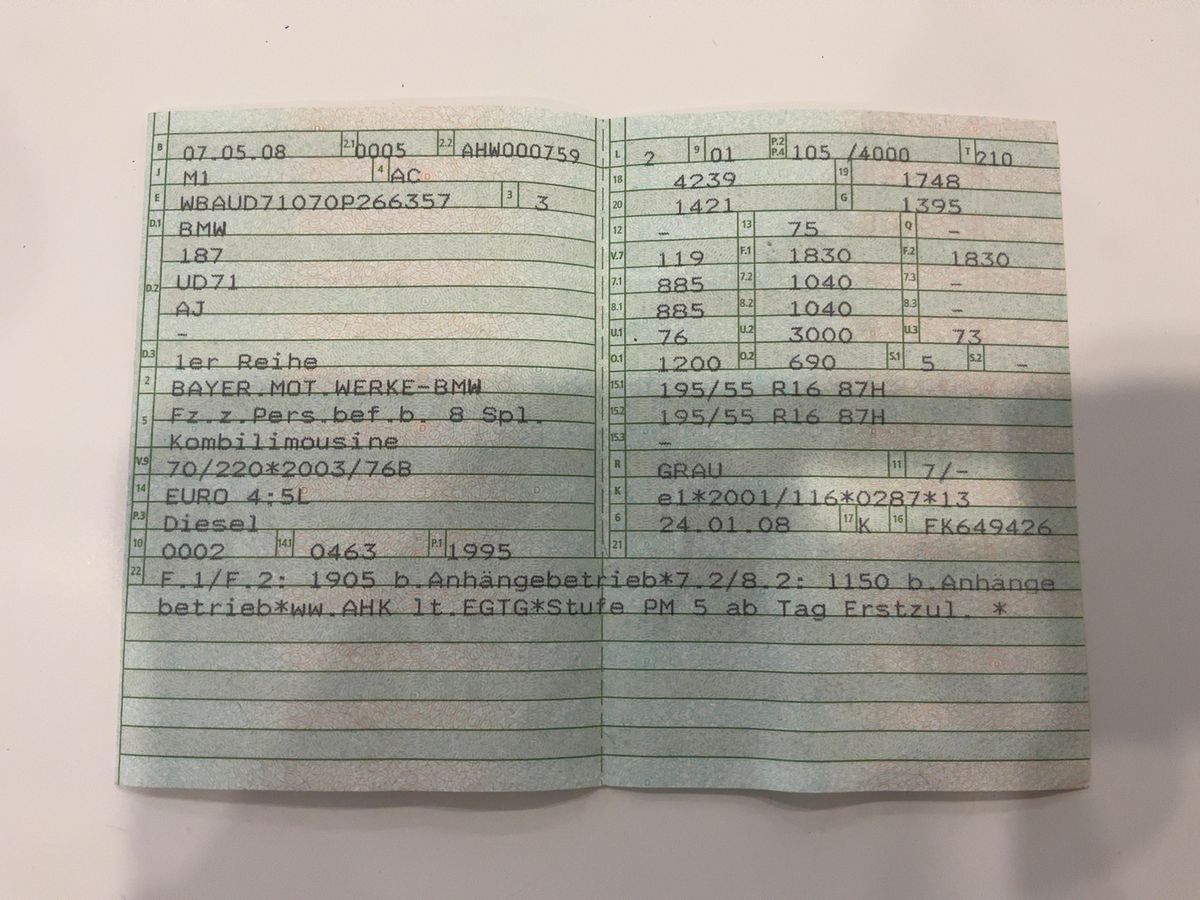 B 07.05.08 2.1 0005 2.2 AHW000759
J M1 4 AC
E WBAUD71070P266357 3 3
D.1 BMW
187
D.2 UD71
AJ
-
D.3 1er Reihe
2 BAYER.MOT.WERKE-BMW
5 Fz.z.Pers.bef.b. 8 Spl.
Kombilimousine
V.9 70/220*2003/76B
14 EURO 4;5L
P.3 Diesel
10 0002 14.1 0463 P.1 1995
L 2 9 01 P.2 P.4 105 /4000 T 210
18 4239 19 1748
20 1421 G 1395
12 - 13 75 Q -
V.7 119 F.1 1830 F.2 1830
7.1 885 7.2 1040 7.3 -
8.1 885 8.2 1040 8.3 -
U.1 76 U.2 3000 U.3 73
O.1 1200 O.2 690 S.1 5 S.2 -
15.1 195/55 R16 87H
15.2 195/55 R16 87H
15.3 -
R GRAU 11 7/-
K e1*2001/116*0287*13
6 24.01.08 17 K 16 FK649426
21
22 F.1/F.2: 1905 b.Anhängebetrieb*7.2/8.2: 1150 b.Anhänge
betrieb*ww.AHK lt.EGTG*Stufe PM 5 ab Tag Erstzul. *